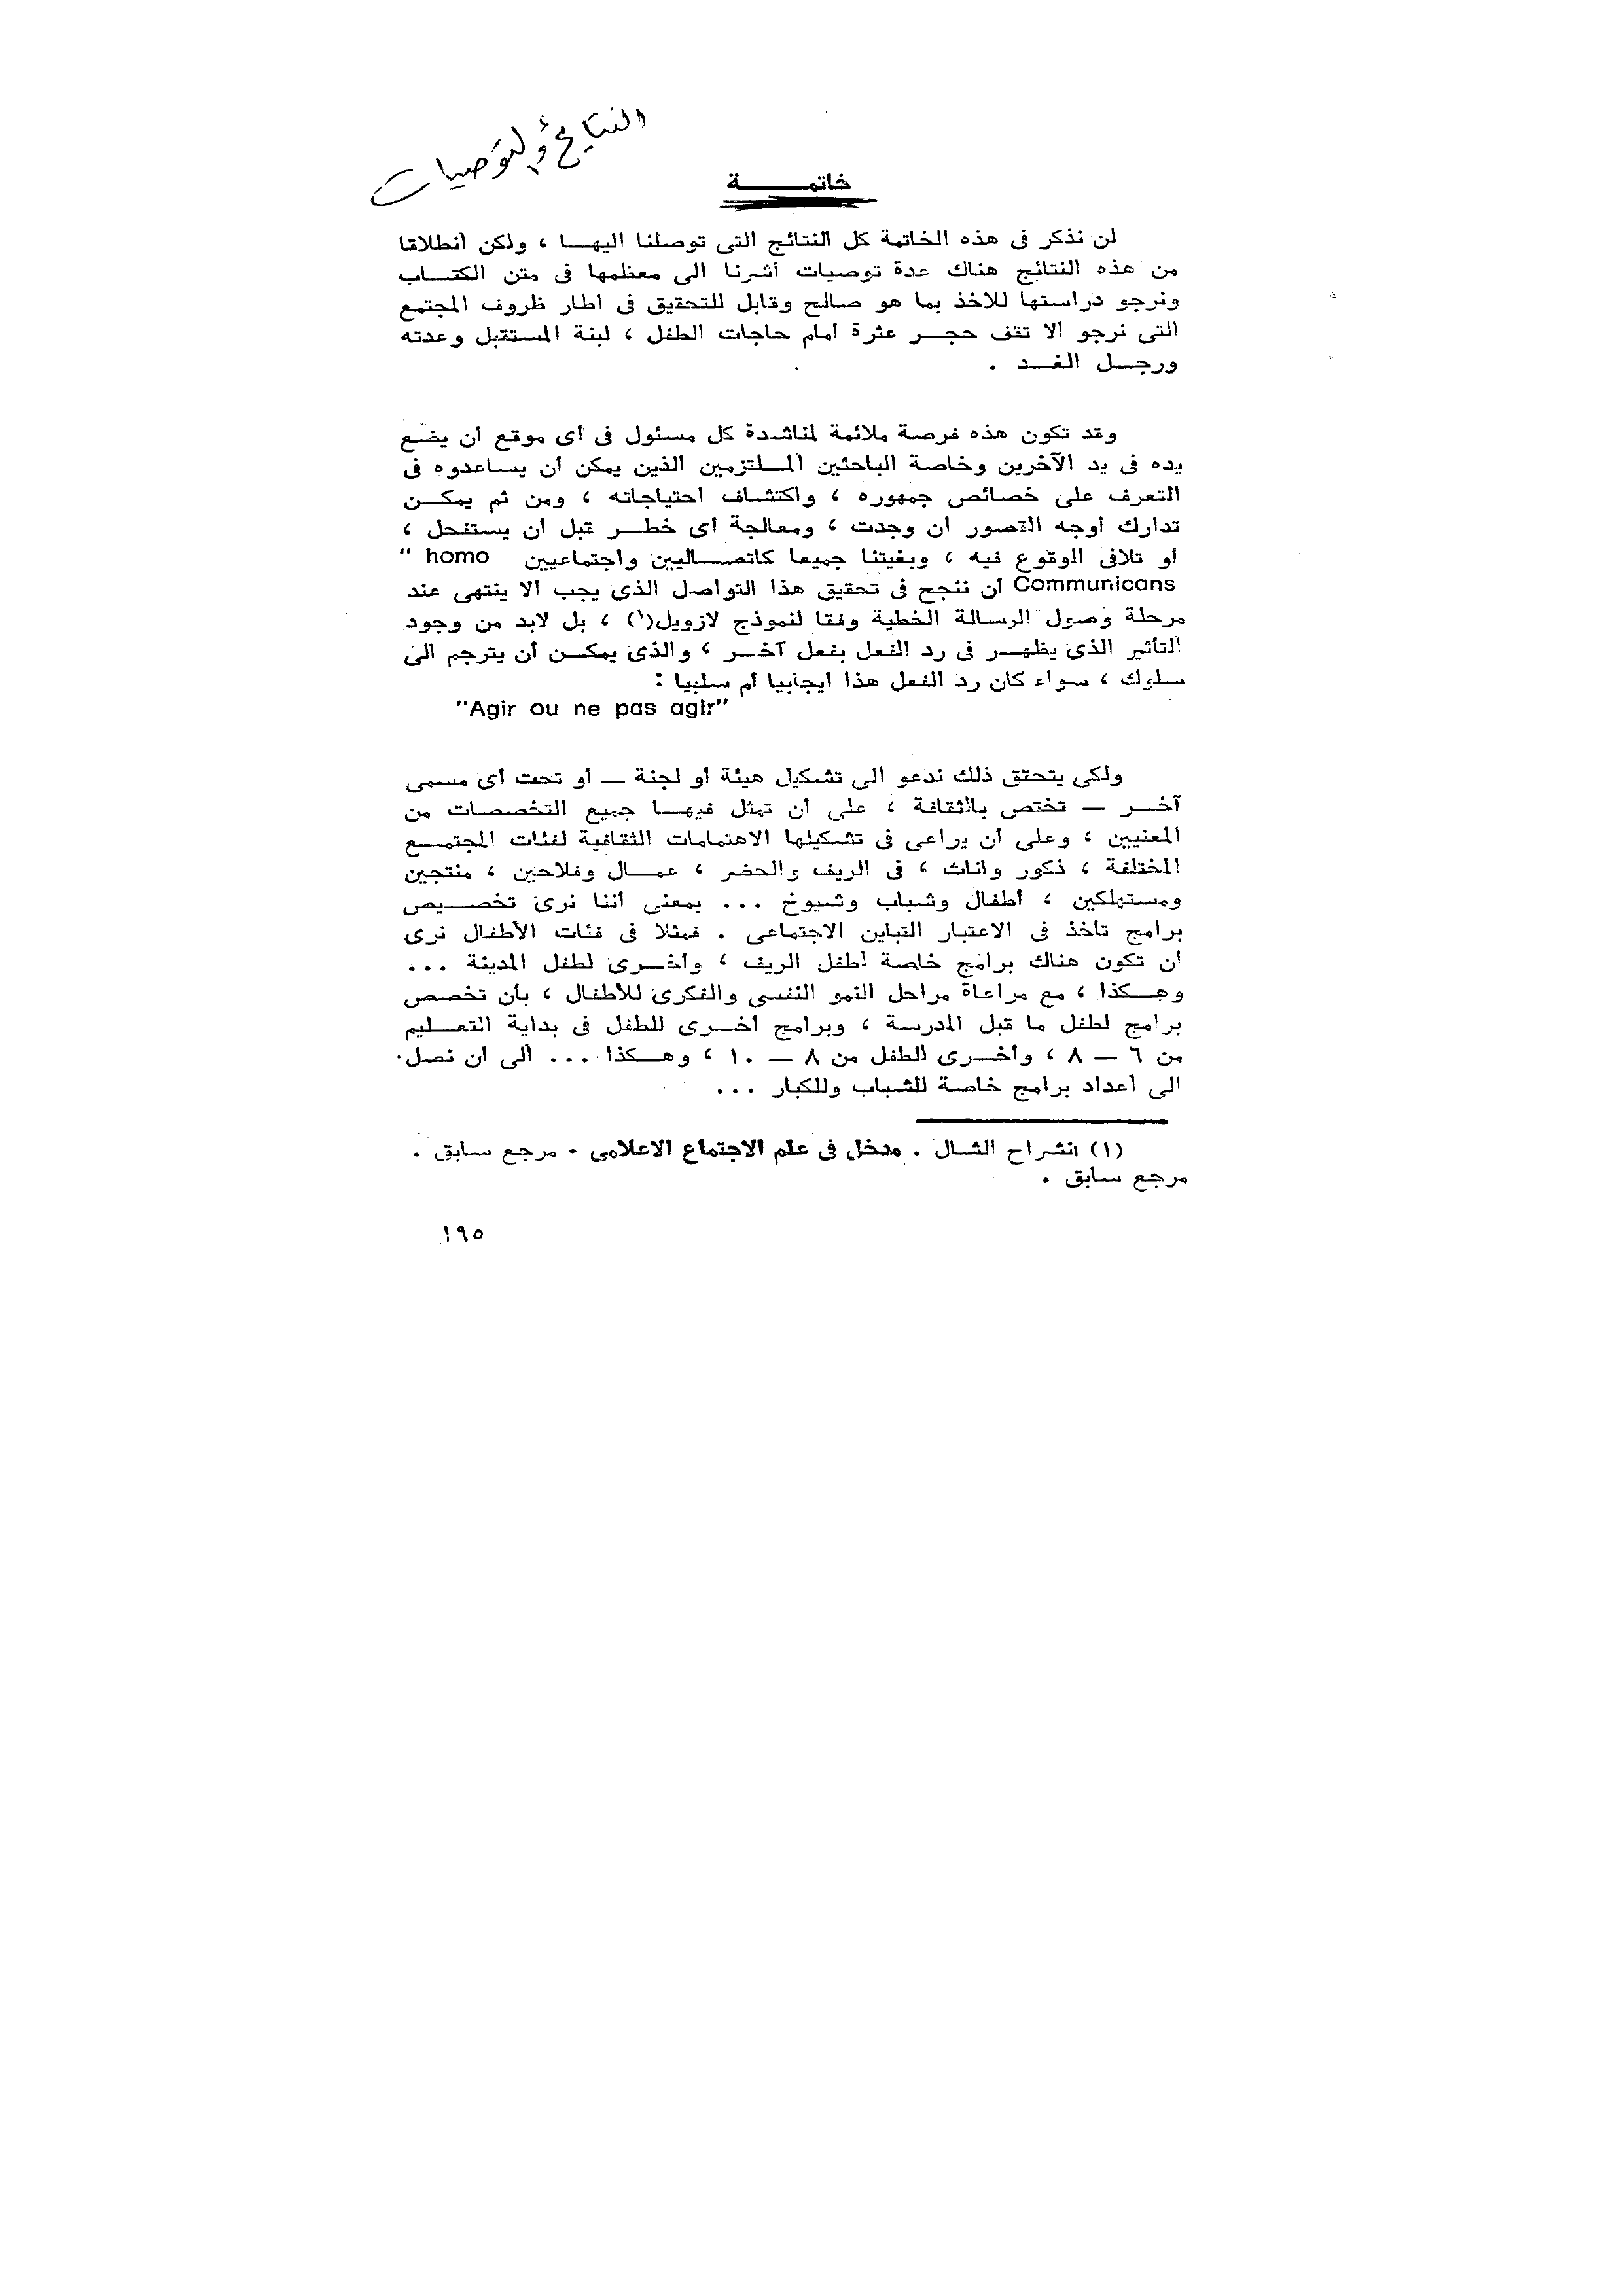 النتائج والتوصيات
خاتمـــــة
لن نذكر فى هذه الخاتمة كل النتائج التى توصلنا اليهـــا ، ولكن انطلاقا
من هذه النتائج هناك عدة توصيات أشرنا الى معظمها فى متن الكتـــاب
ونرجو دراستها للاخذ بما هو صالح وقابل للتحقيق فى اطار ظروف المجتمع
التى نرجو ألا تقف حجـــر عثرة أمام حاجات الطفل ، لبنة المستقبل وعدته
ورجـــل الغـــد .
وقد تكون هذه فرصة ملائمة لمناشدة كل مسئول فى أى موقع أن يضع
يده فى يد الآخرين وخاصة الباحثين المـــلتزمين الذين يمكن أن يساعدوه فى
التعرف على خصائص جمهوره ، واكتشاف احتياجاته ، ومن ثم يمكـــن
تدارك أوجه القصور ان وجدت ، ومعالجة أى خطـــر قبل أن يستفحل ،
أو تلافى الوقوع فيه ، وبغيتنا جميعا كاتصـــاليين واجتماعيين homo "
Communicans أن ننجح فى تحقيق هذا التواصل الذى يجب ألا ينتهى عند
مرحلة وصول الرسالة الخطية وفقا لنموذج لازويل(١) ، بل لابد من وجود
التأثير الذى يظهـــر فى رد الفعل بفعل آخـــر ، والذى يمكـــن أن يترجم الى
سلوك ، سواء كان رد الفعل هذا ايجابيا أم سلبيا :
"Agir ou ne pas agir"
ولكى يتحقق ذلك ندعو الى تشكيل هيئة أو لجنة — أو تحت أى مسمى
آخـــر — تختص بالثقافة ، على أن تمثل فيهـــا جميع التخصصات من
المعنيين ، وعلى أن يراعى فى تشكيلها الاهتمامات الثقافية لفئات المجتمـــع
المختلفة ، ذكور واناث ، فى الريف والحضر ، عمـــال وفلاحين ، منتجين
ومستهلكين ، أطفال وشباب وشيوخ ... بمعنى أننا نرى تخصـــيص
برامج تأخذ فى الاعتبار التباين الاجتماعى . فمثلا فى فئات الأطفال نرى
أن تكون هناك برامج خاصة لطفل الريف ، وأخـــرى لطفل المدينة ...
وهـــكذا ، مع مراعاة مراحل النمو النفسى والفكرى للأطفال ، بأن تخصص
برامج لطفل ما قبل المدرسة ، وبرامج أخـــرى للطفل فى بداية التعـــليم
من ٦ — ٨ ، وأخـــرى للطفل من ٨ — ١٠ ، وهـــكذا ... الى أن نصل
الى اعداد برامج خاصة للشباب وللكبار ...
(١) انشراح الشال . مدخل فى علم الاجتماع الاعلامى . مرجع سابق .
مرجع سابق .
١٩٥